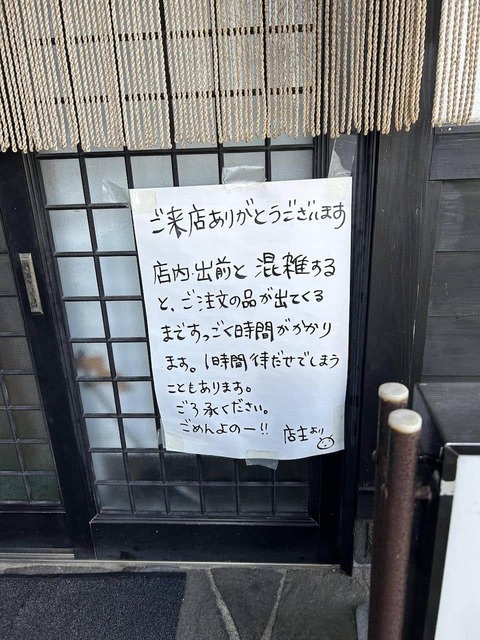 ご来店ありがとうございます
店内・出前と混雑する
と、ご注文の品が出てくる
まですっごく時間がかかり
ます。1時間待だせてしまう
こともあります。
ご了承ください。
ごめんよのー!!
店主より